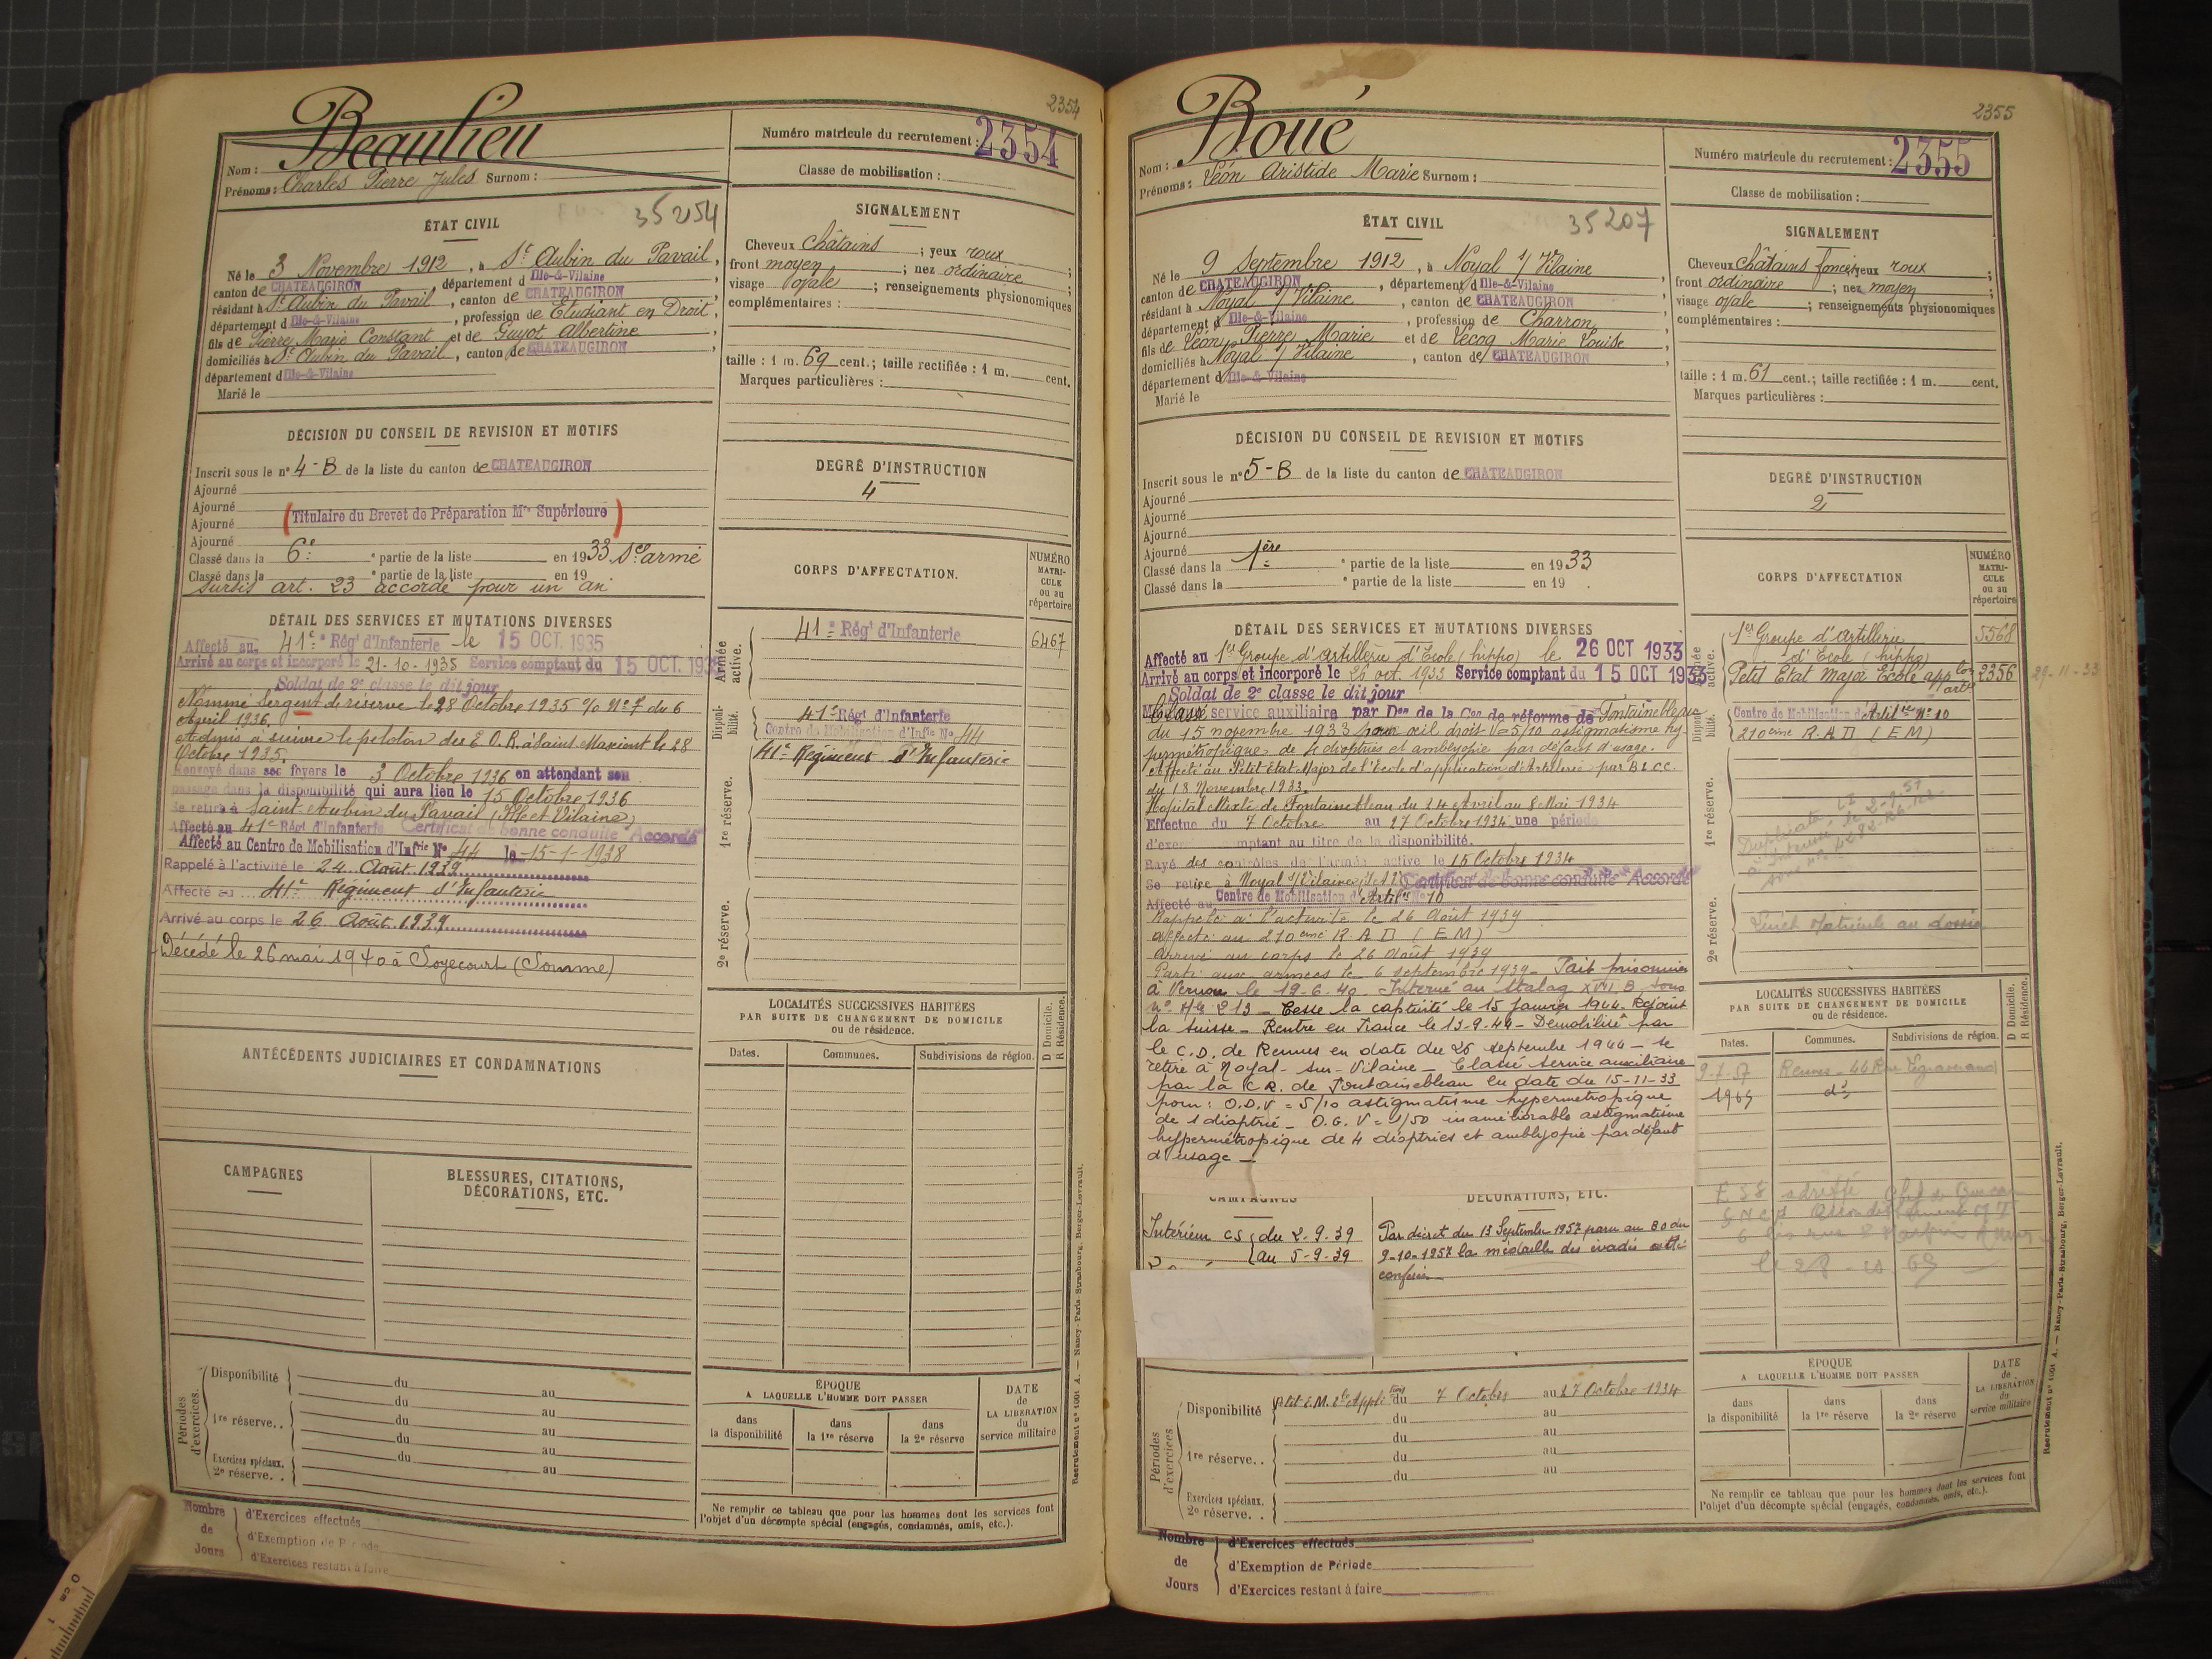 2354
Beaulieu
Nom :
Prénoms : Charles Pierre Jules Surnom :
Numéro matricule du recrutement : 2354
Classe de mobilisation :
ÉTAT CIVIL
35254
Né le 3 Novembre 1912, à St Aubin du Pavail,
canton de CHATEAUGIRON, département d Ille-&-Vilaine
résidant à St Aubin du Pavail, canton de CHATEAUGIRON
département d Ille-&-Vilaine, profession de Etudiant en Droit,
fils de Pierre Marie Constant et de Guyot Albertine
domiciliés à St Aubin du Pavail, canton de CHATEAUGIRON,
département d Ille-&-Vilaine
Marié le
SIGNALEMENT
Cheveux châtains ; yeux roux ;
front moyen ; nez ordinaire ;
visage ovale ; renseignements physionomiques
complémentaires :
taille : 1 m. 69 cent.; taille rectifiée : 1 m. cent.
Marques particulières :
DÉCISION DU CONSEIL DE REVISION ET MOTIFS
Inscrit sous le n° 4-B de la liste du canton de CHATEAUGIRON
Ajourné
Ajourné
Ajourné
(Titulaire du Brevet de Préparation Mre Supérieure)
Ajourné
Classé dans la 6e partie de la liste en 1933 Sce armé
Classé dans la e partie de la liste en 19
sursis art. 23 accordé pour un an
DEGRÉ D'INSTRUCTION
4
CORPS D'AFFECTATION.
NUMÉRO
MATRI-
CULE
ou au
répertoire
Armée active.
41e Régt d'Infanterie
6467
Disponibilité.
41e Régt d'Infanterie
Centre de Mobilisation d'Infie No 44
41e Régiment d'Infanterie
1re réserve.
2e réserve.
DÉTAIL DES SERVICES ET MUTATIONS DIVERSES
Affecté au 41e Régt d'Infanterie le 15 OCT. 1935
Arrivé au corps et incorporé le 21-10-1935 Service comptant du 15 OCT. 1935
Soldat de 2e classe le dit jour
Nommé Sergent de réserve le 28 Octobre 1935 % No 7 du 6
Avril 1936.
Admis à suivre le peloton des E.O.R. à Saint Maixent le 28
Octobre 1935.
Renvoyé dans ses foyers le 3 Octobre 1936 en attendant son
passage dans la disponibilité qui aura lieu le 15 Octobre 1936
Se retire à Saint-Aubin du Pavail (Ille et Vilaine)
Affecté au 41e Régt d'Infanterie Certificat de bonne conduite Accordé
Affecté au Centre de Mobilisation d'Infrie No 44 le 15-1-1938
Rappelé à l'activité le 24 Août 1939
Affecté au 41e Régiment d'Infanterie
Arrivé au corps le 26 Août 1939
Décédé le 26 mai 1940 à Soyecourt (Somme)
ANTÉCÉDENTS JUDICIAIRES ET CONDAMNATIONS
CAMPAGNES
BLESSURES, CITATIONS,
DÉCORATIONS, ETC.
LOCALITÉS SUCCESSIVES HABITÉES
PAR SUITE DE CHANGEMENT DE DOMICILE
ou de résidence.
D Domicile.
R Résidence.
Dates.
Communes.
Subdivisions de région.
Périodes d'exercices.
Disponibilité
du au
du au
1re réserve. .
du au
du au
du au
Exercices spéciaux.
2e réserve. .
au
ÉPOQUE
A LAQUELLE L'HOMME DOIT PASSER
dans
la disponibilité
dans
la 1re réserve
dans
la 2e réserve
DATE
de
LA LIBÉRATION
du
service militaire
Ne remplir ce tableau que pour les hommes dont les services font
l'objet d'un décompte spécial (engagés, condamnés, omis, etc.).
Nombre
de
Jours
d'Exercices effectués
d'Exemption de Période
d'Exercices restant à faire
Recrutement n° 1001 A. — Nancy-Paris-Strasbourg, Berger-Levrault.
2355
Boué
Nom :
Prénoms : Léon Aristide Marie Surnom :
Numéro matricule du recrutement : 2355
Classe de mobilisation :
ÉTAT CIVIL
35207
Né le 9 Septembre 1912, à Noyal s/ Vilaine
canton de CHATEAUGIRON, département d Ille-&-Vilaine
résidant à Noyal s/ Vilaine, canton de CHATEAUGIRON
département d Ille-&-Vilaine, profession de Charron,
fils de Léon Pierre Marie et de Lecoq Marie Louise
domiciliés à Noyal s/ Vilaine, canton de CHATEAUGIRON
département d Ille-&-Vilaine
Marié le
SIGNALEMENT
Cheveux châtains foncés; yeux roux ;
front ordinaire ; nez moyen ;
visage ovale ; renseignements physionomiques
complémentaires :
taille : 1 m. 61 cent.; taille rectifiée : 1 m. cent.
Marques particulières :
DÉCISION DU CONSEIL DE REVISION ET MOTIFS
Inscrit sous le n° 5-B de la liste du canton de CHATEAUGIRON
Ajourné
Ajourné
Ajourné
Ajourné
Classé dans la 1ère partie de la liste en 1933
Classé dans la e partie de la liste en 19 .
DEGRÉ D'INSTRUCTION
2
CORPS D'AFFECTATION
NUMÉRO
MATRI-
CULE
ou au
répertoire
Armée active.
1er Groupe d'Artillerie
d'Ecole (hippo)
5568
Petit Etat Major Ecole appton artie
2356
29-11-33
Disponibilité.
Centre de Mobilisation d'Artilrie No 10
210ème R.A.D (EM)
1re réserve.
Duplicata
2e réserve.
Livret Matricule au dossier
DÉTAIL DES SERVICES ET MUTATIONS DIVERSES
Affecté au 1er Groupe d'Artillerie d'Ecole (hippo) le 26 OCT 1933
Arrivé au corps et incorporé le 26 oct. 1933 Service comptant du 15 OCT 1933
Soldat de 2e classe le dit jour
Classé service auxiliaire par Don de la Con de réforme de Fontainebleau
du 15 novembre 1933 pour œil droit V=5/10 astigmatisme hy-
permétropique de 4 dioptries et amblyopie par défaut d'usage.
Affecté au Petit Etat Major de l'Ecole d'application d'Artillerie par B.L.C.C.
du 18 Novembre 1933.
Hôpital Mixte de Fontainebleau du 24 Avril au 8 Mai 1934
Effectue du 7 Octobre au 27 Octobre 1934 une période
d'exer mptant au titre de la disponibilité.
Rayé des contrôles de l'armée active le 15 Octobre 1934
Se retire à Noyal s/Vilaine Certificat de bonne conduite Accordé
Affecté au Centre de Mobilisation d'Artilrie No 10
Rappelé à l'activité le 26 Août 1939
affecté au 210ème R.A.D (EM)
arrivé au corps le 26 Août 1939
Parti aux armées le 6 septembre 1939 - Fait prisonnier
à Vernou le 19.6.40 Interné au Stalag XVII B sous
Cesse la captivité le 15 Janvier 1944. Rejoint
la Suisse - Rentre en France le 13-9-44 - Démobilisé par
le C.D. de Rennes en date du 26 septembre 1944 - Se
retire à Noyal-sur-Vilaine - Classé service auxiliaire
par la C.R. de Fontainebleau en date du 15-11-33
pour : O.D.V = 5/10 astigmatisme hypermétropique
de 1 dioptrie - O.G. V = 1/50 inaméliorable astigmatisme
hypermétropique de 4 dioptries et amblyopie par défaut
d'usage -
CAMPAGNES
DÉCORATIONS, ETC.
Intérieur CS du 2-9-39
au 5-9-39
Par décret du 13 Septembre 1957 paru au BO du
9-10-1957 la médaille des évadés a été
conférée
LOCALITÉS SUCCESSIVES HABITÉES
PAR SUITE DE CHANGEMENT DE DOMICILE
ou de résidence.
D Domicile.
R Résidence.
Dates.
Communes.
Subdivisions de région.
9-7-57 Rennes - 44 Rue
1965 do
Périodes d'exercices
Disponibilité
Ptit E.M. Ecle Applition du 7 Octobre au 27 Octobre 1934
du au
1re réserve. .
du au
du au
du au
Exercices spéciaux.
2e réserve. .
ÉPOQUE
A LAQUELLE L'HOMME DOIT PASSER
dans
la disponibilité
dans
la 1re réserve
dans
la 2e réserve
DATE
de
LA LIBÉRATION
du
service militaire
Ne remplir ce tableau que pour les hommes dont les services font
l'objet d'un décompte spécial (engagés, condamnés, omis, etc.).
Nombre
de
Jours
d'Exercices effectués
d'Exemption de Période
d'Exercices restant à faire
Recrutement n° 1001 A. — Nancy-Paris-Strasbourg, Berger-Levrault.
0 cm 1